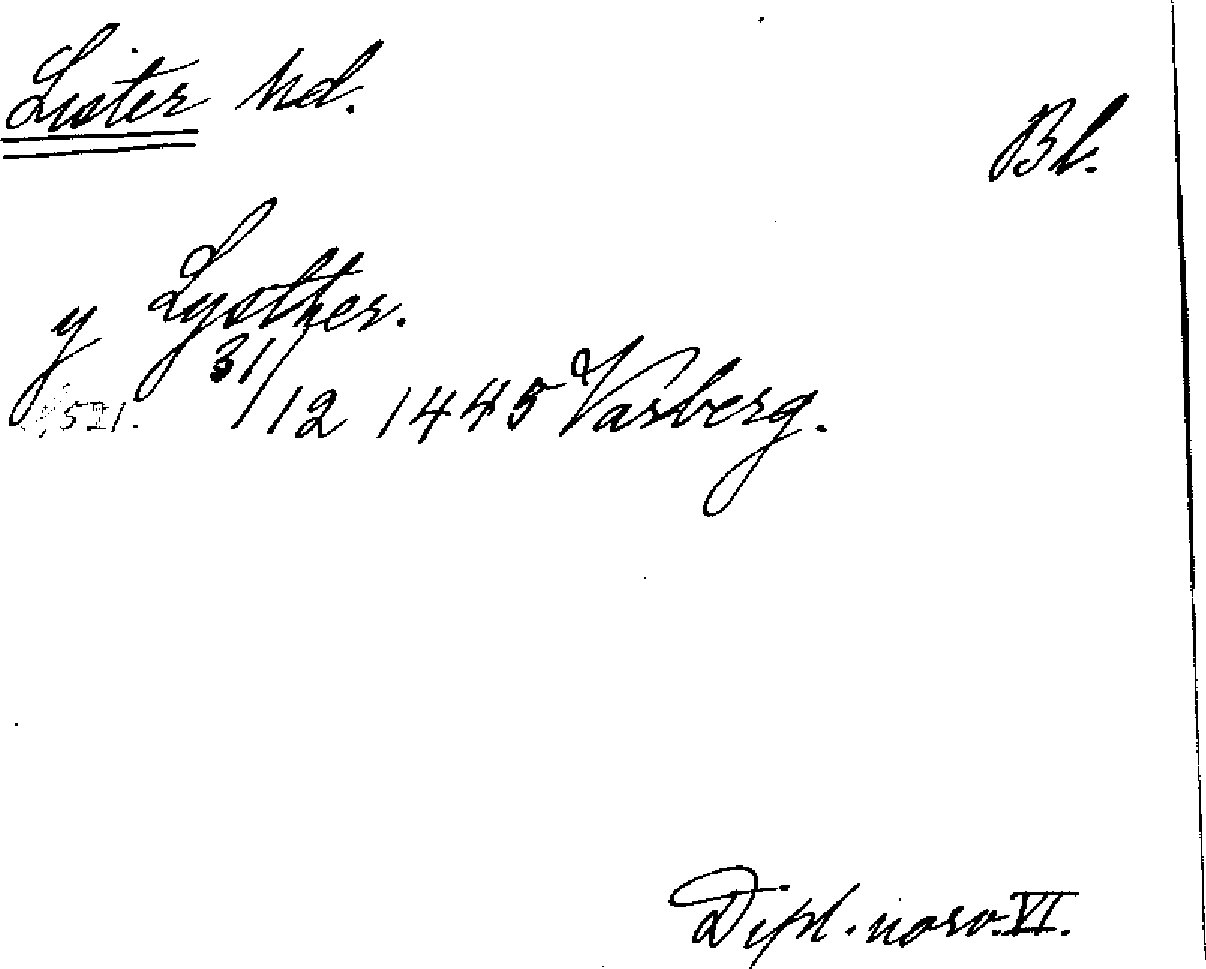 Lister hd.
Bl.
y Lysther.
31/12 1445 Varberg.
Dipl. norv. VI.